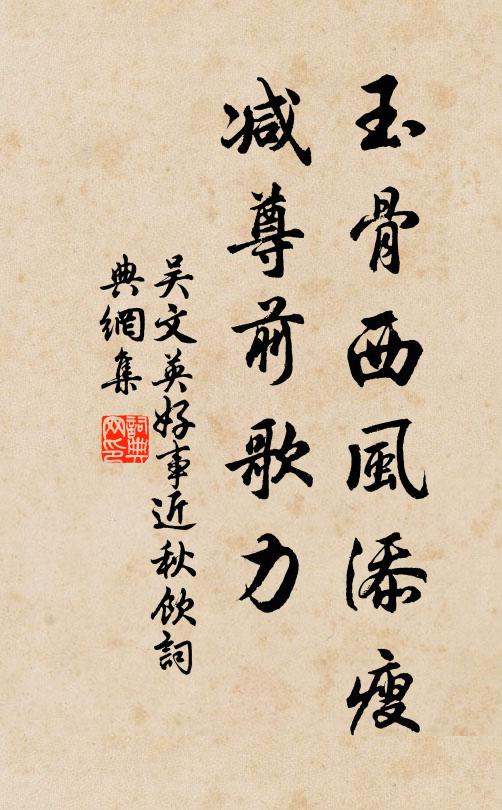 玉骨西風添瘦
减尊前歌力
吴文英好事近秋飲詞
典網集
詞典
网印